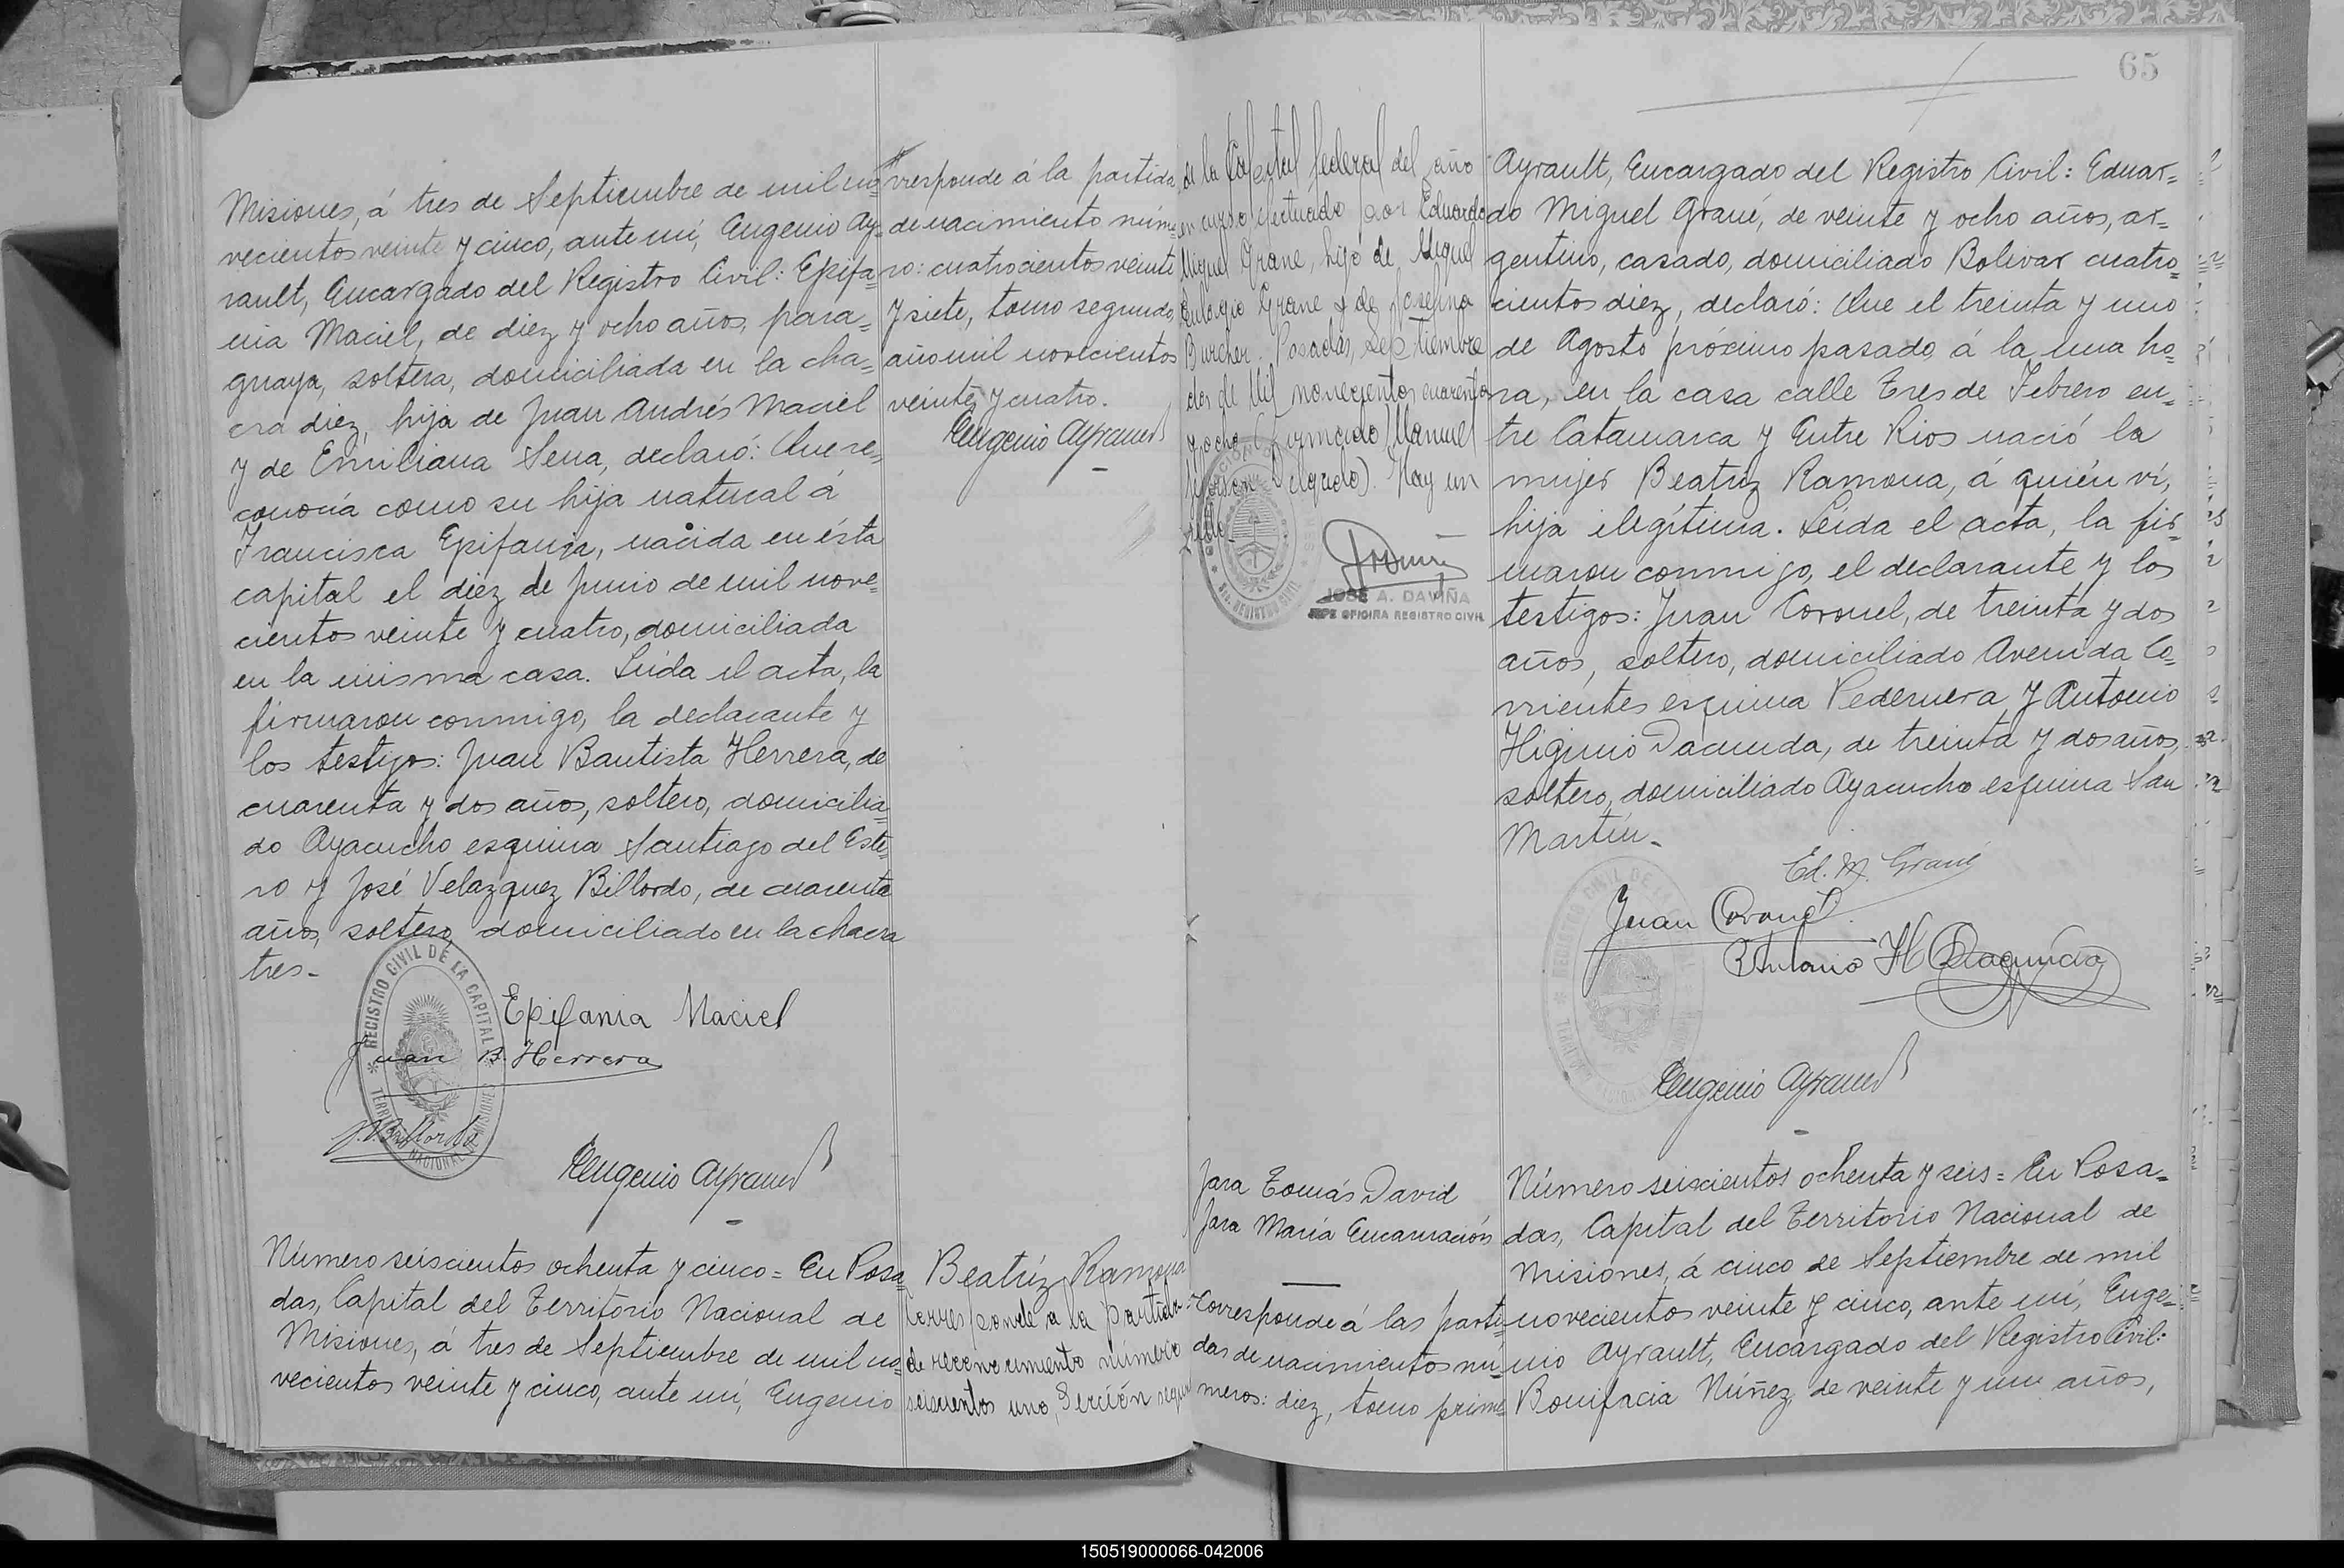 Misiones, á tres de Septiembre de mil no=
vecientos veinte y cinco, ante mí, Eugenio Ay=
rault, Encargado del Registro Civil: Epifa=
nia Maciel, de diez y ocho años, para=
guaya, soltera, domiciliada en la cha=
cra diez, hija de Juan Andrés Maciel
y de Emiliana Sena, declaró: Que re=
conocía como su hija natural á
Francisca Epifania, nacida en ésta
capital el diez de Junio de mil nove=
cientos veinte y cuatro, domiciliada
en la misma casa. Leída el acta, la
firmaron conmigo, la declarante y
los testigos: Juan Bautista Herrera, de
cuarenta y dos años, soltero, domicilia=
do Ayacucho esquina Santiago del Este=
ro y José Velazquez Billordo, de cuarenta
años, soltero, domiciliado en la chacra
tres.-
REGISTRO CIVIL DE LA CAPITAL
TERRITORIO NACIONAL DE MISIONES
Epifania Maciel
Juan B. Herrera
J. V. Billordo
Eugenio Ayrault
rresponde á la partida
de nacimiento núme=
ro: cuatrocientos veinte
y siete, tomo segundo,
año mil novecientos
veinte y cuatro.
Eugenio Ayrault
Número seiscientos ochenta y cinco = En Posa=
das, Capital del Territorio Nacional de
Misiones, á tres de Septiembre de mil no=
vecientos veinte y cinco, ante mí, Eugenio
Beatríz Ramona
Corresponde a la partida
de reconocimiento número
seiscientos uno, Sección segun
65
de la Capital federal del año
en curso efectuado por Eduardo
Miguel Grane, hijo de Miguel
Eulogio Grane y de Josefina
Burcher. Posadas, Septiembre
dos de Mil novecientos cuarenta
y ocho (Firmado Manuel
Delgado). Hay un
sello
JOSE A. DAVIÑA
JEFE OFICINA REGISTRO CIVIL
Ayrault, Encargado del Registro Civil: Eduar=
do Miguel Grané, de veinte y ocho años, ar=
gentino, casado, domiciliado Bolivar cuatro=
cientos diez, declaró: Que el treinta y uno
de Agosto próximo pasado, á la una ho=
ra, en la casa calle Tres de Febrero en=
tre Catamarca y Entre Rios nació la
mujer Beatriz Ramona, á quién ví,
hija ilegítima. Leída el acta, la fir=
maron conmigo, el declarante y los
testigos: Juan Coronel, de treinta y dos
años, soltero, domiciliado Avenida Co=
rrientes esquina Pedernera y Antonio
Higinio Dacunda, de treinta y dos años,
soltero, domiciliado Ayacucho esquina San
Martín.-
Ed. M. Grané
Juan Coronel
Antonio H Dacunda
Eugenio Ayrault
Jara Tomás David
Jara María Encarnación
Corresponde á las parti=
das de nacimientos nú=
meros: diez, tomo prime=
Número seiscientos ochenta y seis = En Posa=
das, Capital del Territorio Nacional de
Misiones, á cinco de Septiembre de mil
novecientos veinte y cinco, ante mí, Euge=
nio Ayrault, Encargado del Registro Civil:
Bonifacia Núñez, de veinte y un años,
150519000066-042006